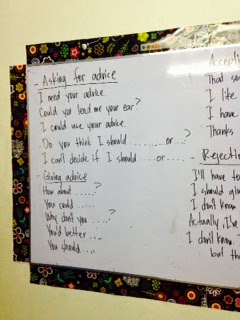 - Asking for advice
I need your advice.
Could you lead me your ear?
I could use your advice.
Do you think I should ........or....?
I can't decide if I should .....or.....
- Giving advice
How about .......?
You could ......
Why don't you ......?
You'd better .....
You should .....
Accepti
That so
I like
I have
Thanks
- Rejectin
I'll have to
I should
I don't know
Actually, I've
I don't know.
but th